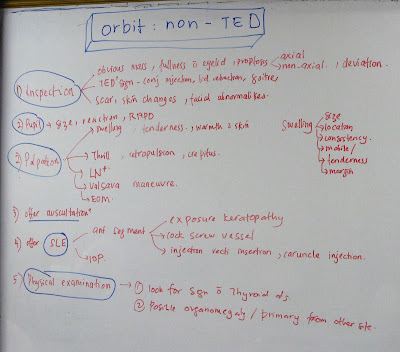 orbit : non - TED
1) Inspection
obvious mass, fullness ō eyelid, proptosis
axial
non-axial, deviation.
TED' sign - conj injection, lid retraction, goitre,
scar, skin changes, facial abnormalities.
2) Pupil → size, reaction, RAPD
2) Palpation
swelling, tenderness, warmth ō skin
Thrill, retropulsion, crepitus.
LN
valsava maneuvre.
EOM.
swelling
size
location
consistency.
mobile /
tenderness
margin
3) offer auscultation
4) offer SLE
ant segment
exposure keratopathy
cock screw vessel
injection recti insertion, caruncle injection.
IOP.
5) Physical examination → ① look for sign ō Thyroid ds.
② Posible organomegaly / primary from other site.